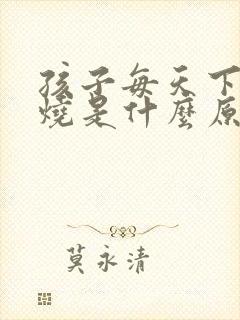 孩子每天下
燒是什麼原
莫永清